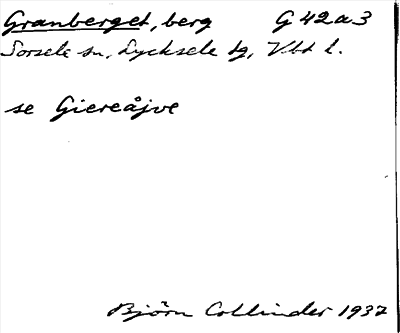 Granberget, berg G 42 a 3
Sorsele sn, Lycksele tg, Vbt l.
se Giereåjve
Björn Collinder 1937